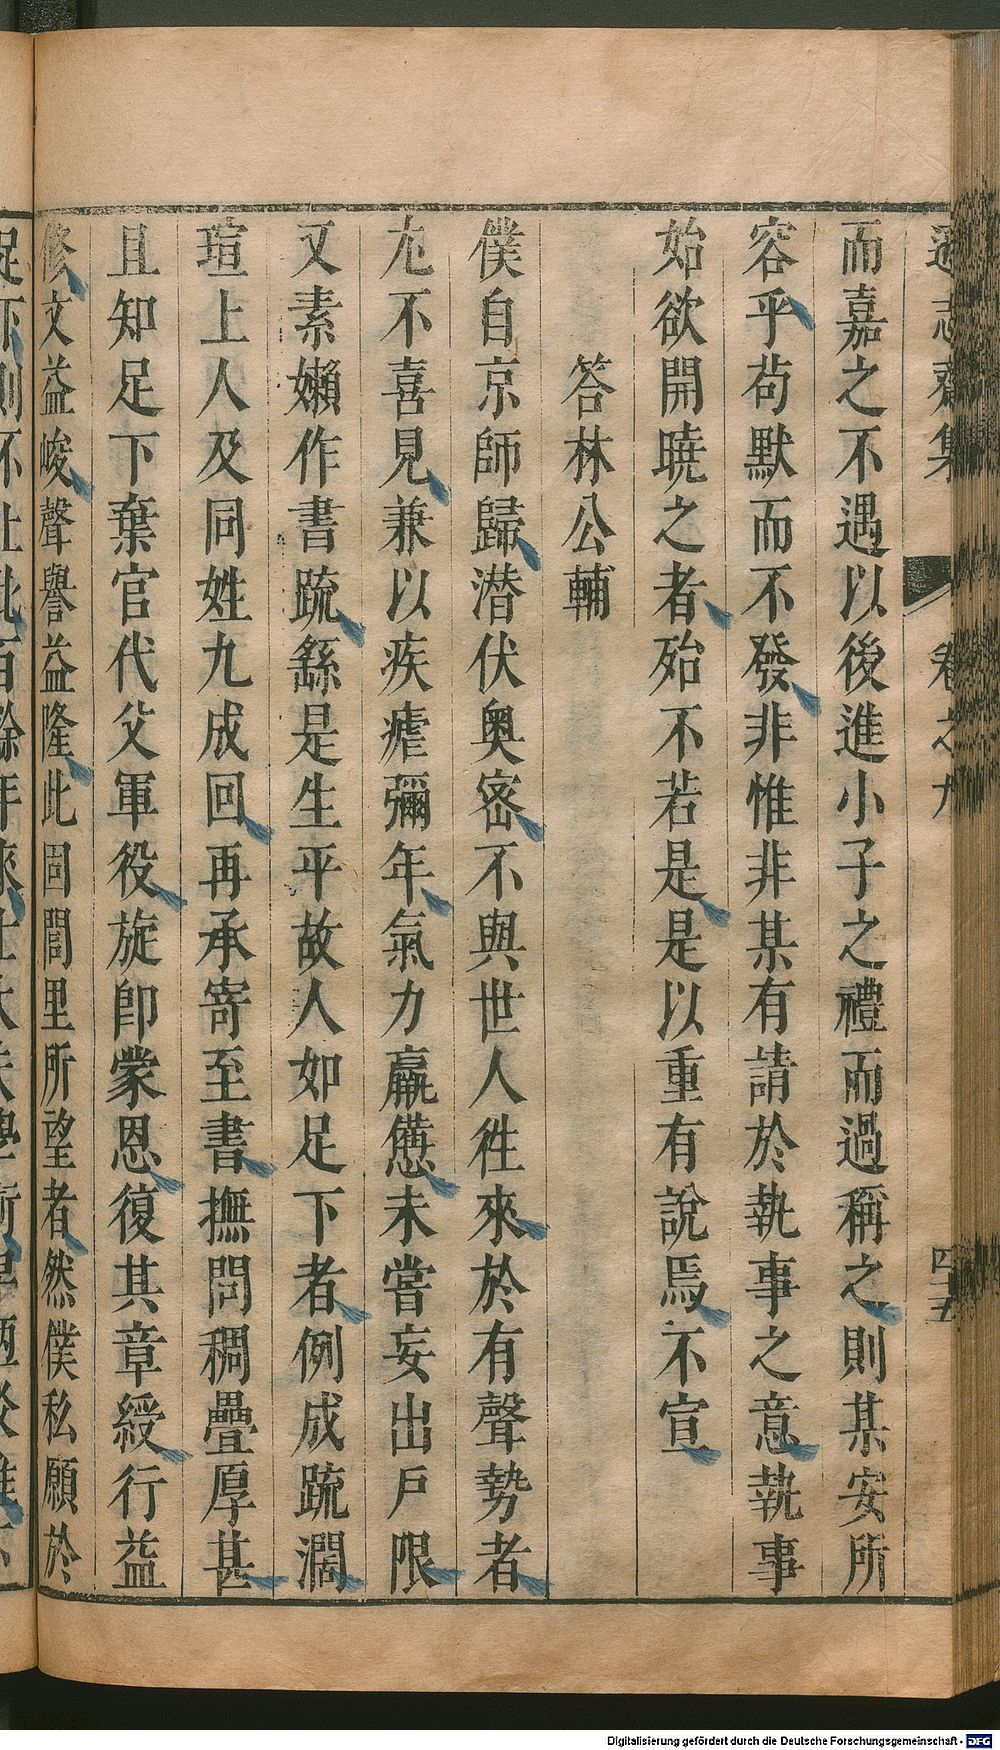 遜志齋集 卷之九 四十五
而嘉之不遇以後進小子之禮而過稱之則某安所
容乎苟默而不發非惟非某有請於執事之意執事
始欲開曉之者殆不若是是以重有說焉不宣
答林公輔
僕自京師歸潜伏奥宻不與世人徃來於有聲勢者
尢不喜見兼以疾瘧彌年氣力羸憊未嘗妄出戶限
又素嬾作書疏繇是生平故人如足下者例成疏濶
瑄上人及同姓九成回再承寄至書撫問稠疊厚甚
且知足下棄官代父軍役旋卽蒙恩復其章綬行益
修文益峻聲譽益隆此固閭里所望者然僕私願於
Digitalisierung gefördert durch die Deutsche Forschungsgemeinschaft - DFG